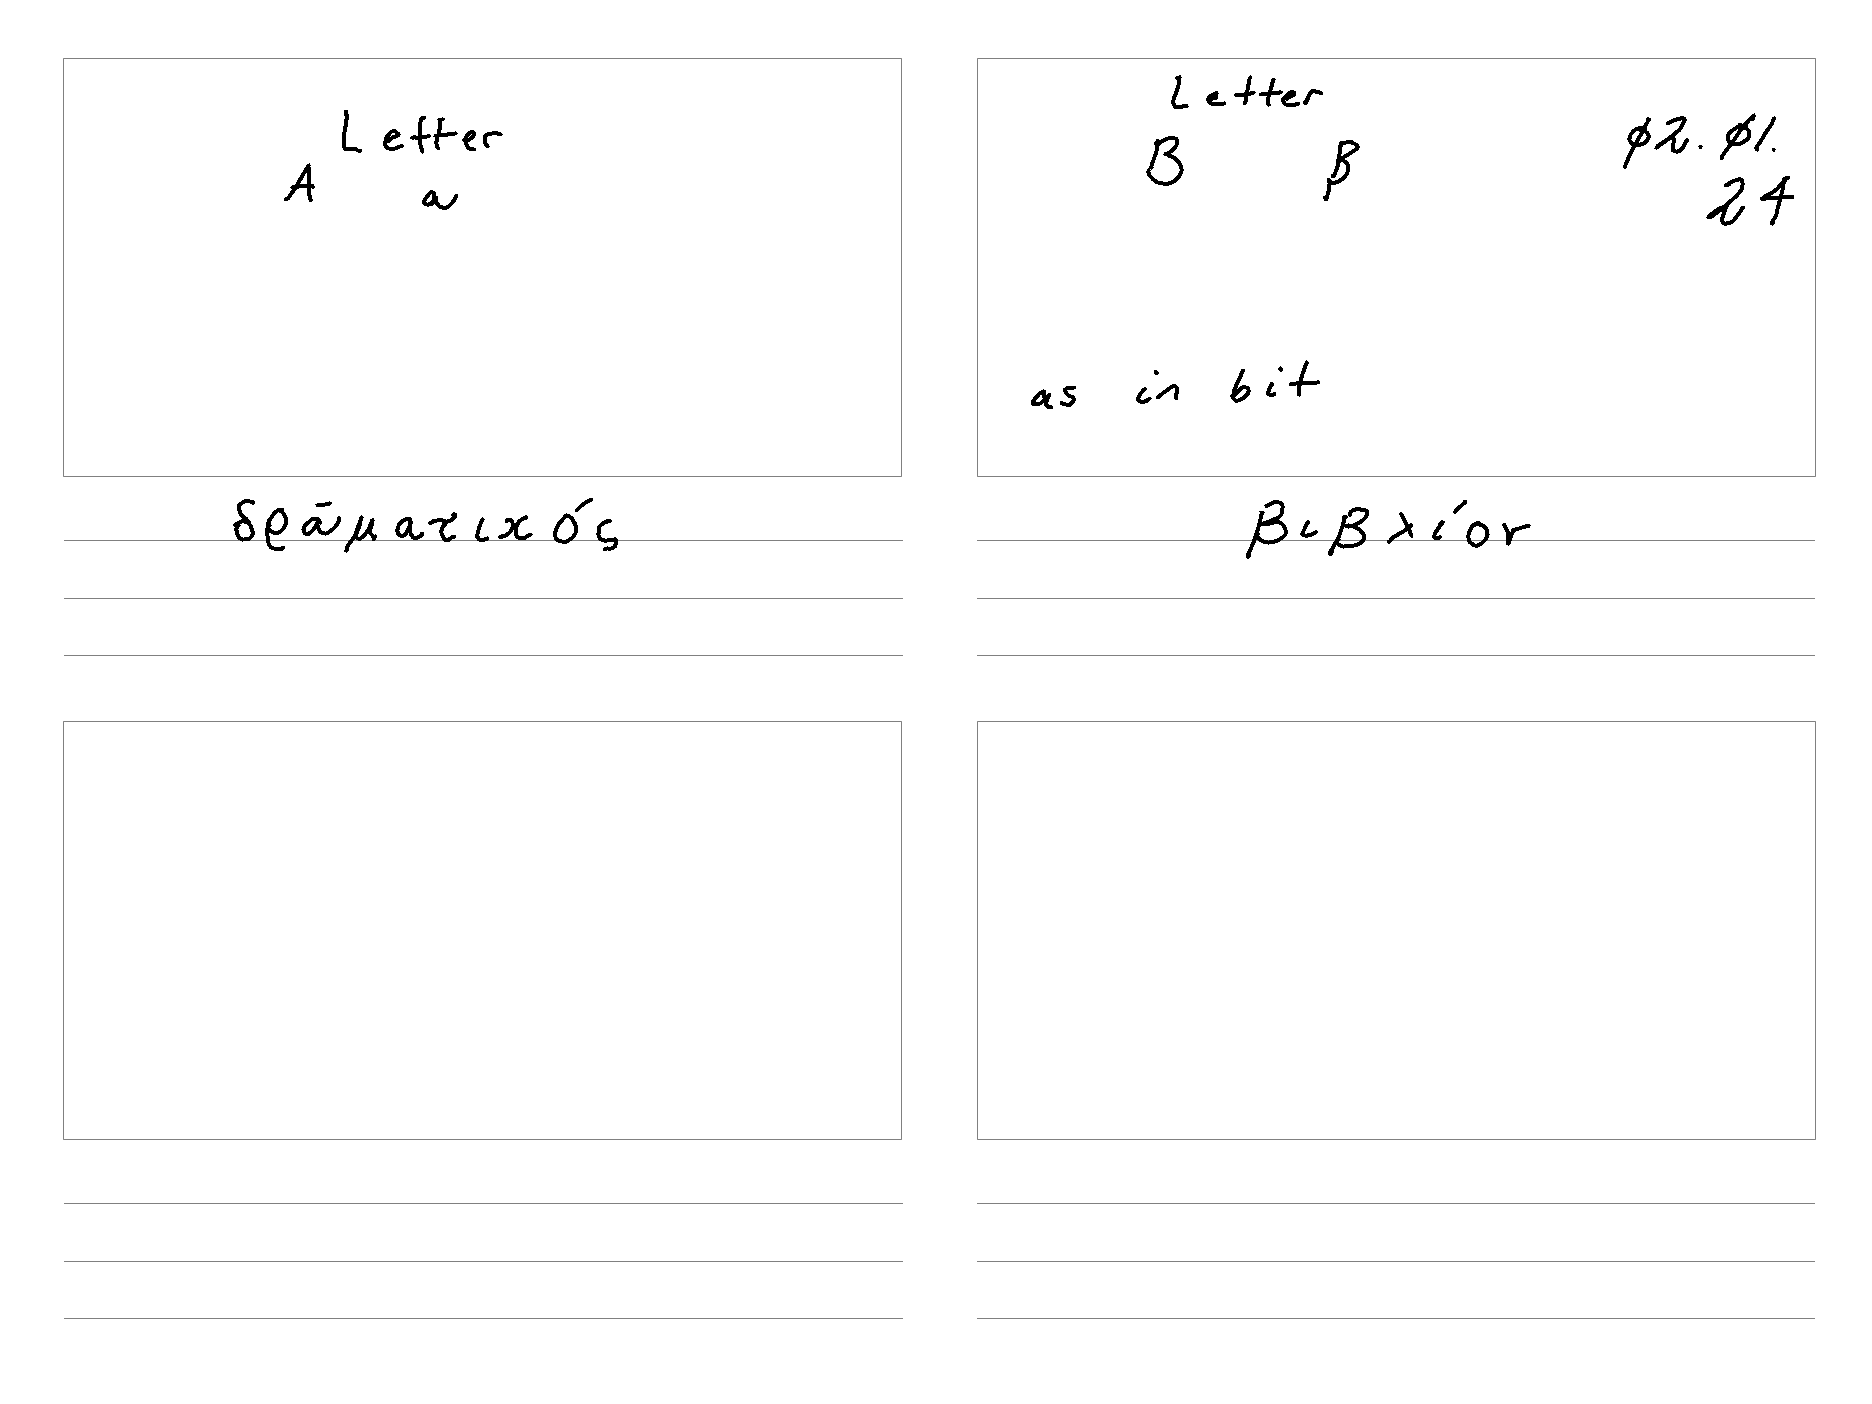 Letter
A α
δρᾱματικός
Letter
Β β
02.01.
24
as in bit
βιβλίον